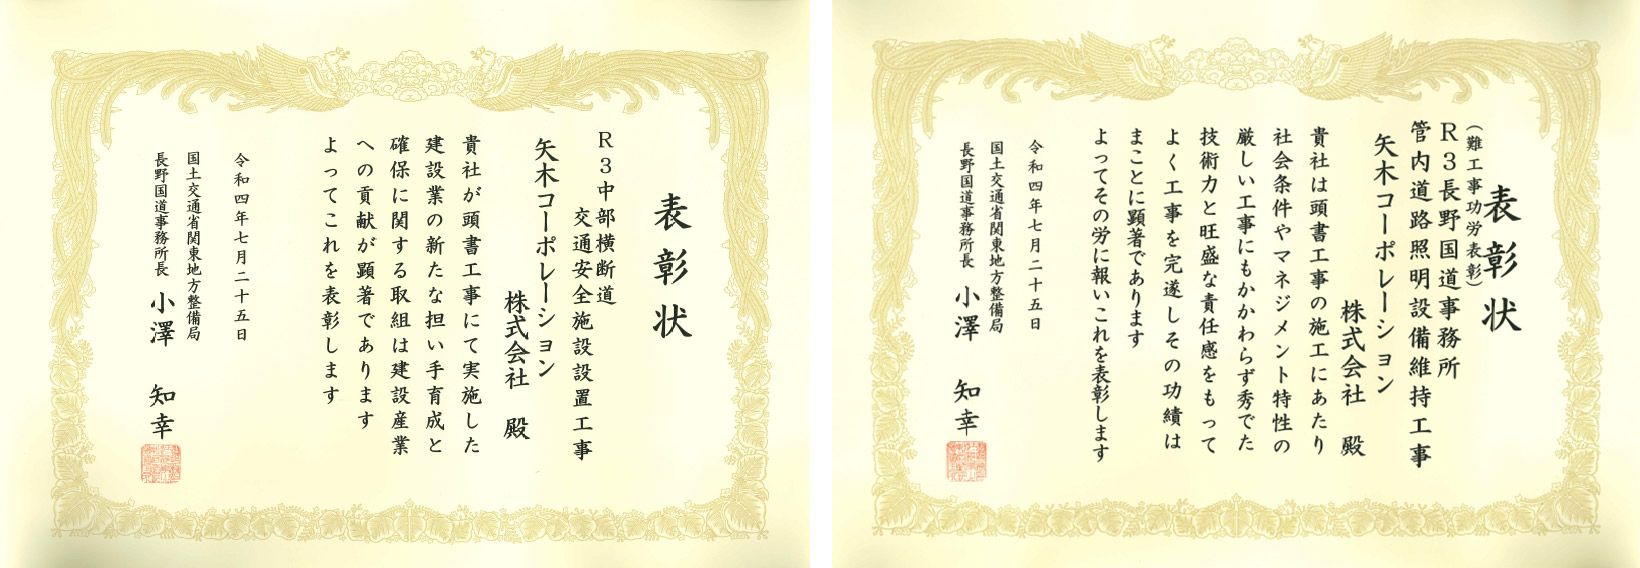 表彰状
R3中部横断道
交通安全施設設置工事
矢木コーポレーション
株式会社 殿
貴社が頭書工事にて実施した
建設業の新たな担い手育成と
確保に関する取組は建設産業
への貢献が顕著であります
よってこれを表彰します
令和四年七月二十五日
国土交通省関東地方整備局
長野国道事務所長 小澤 知幸
表彰状
(難工事功労表彰)
R3長野国道事務所
管内道路照明設備維持工事
矢木コーポレーション
株式会社 殿
貴社は頭書工事の施工にあたり
社会条件やマネジメント特性の
厳しい工事にもかかわらず秀でた
技術力と旺盛な責任感をもって
よく工事を完遂しその功績は
まことに顕著であります
よってその労に報いこれを表彰します
令和四年七月二十五日
国土交通省関東地方整備局
長野国道事務所長 小澤 知幸